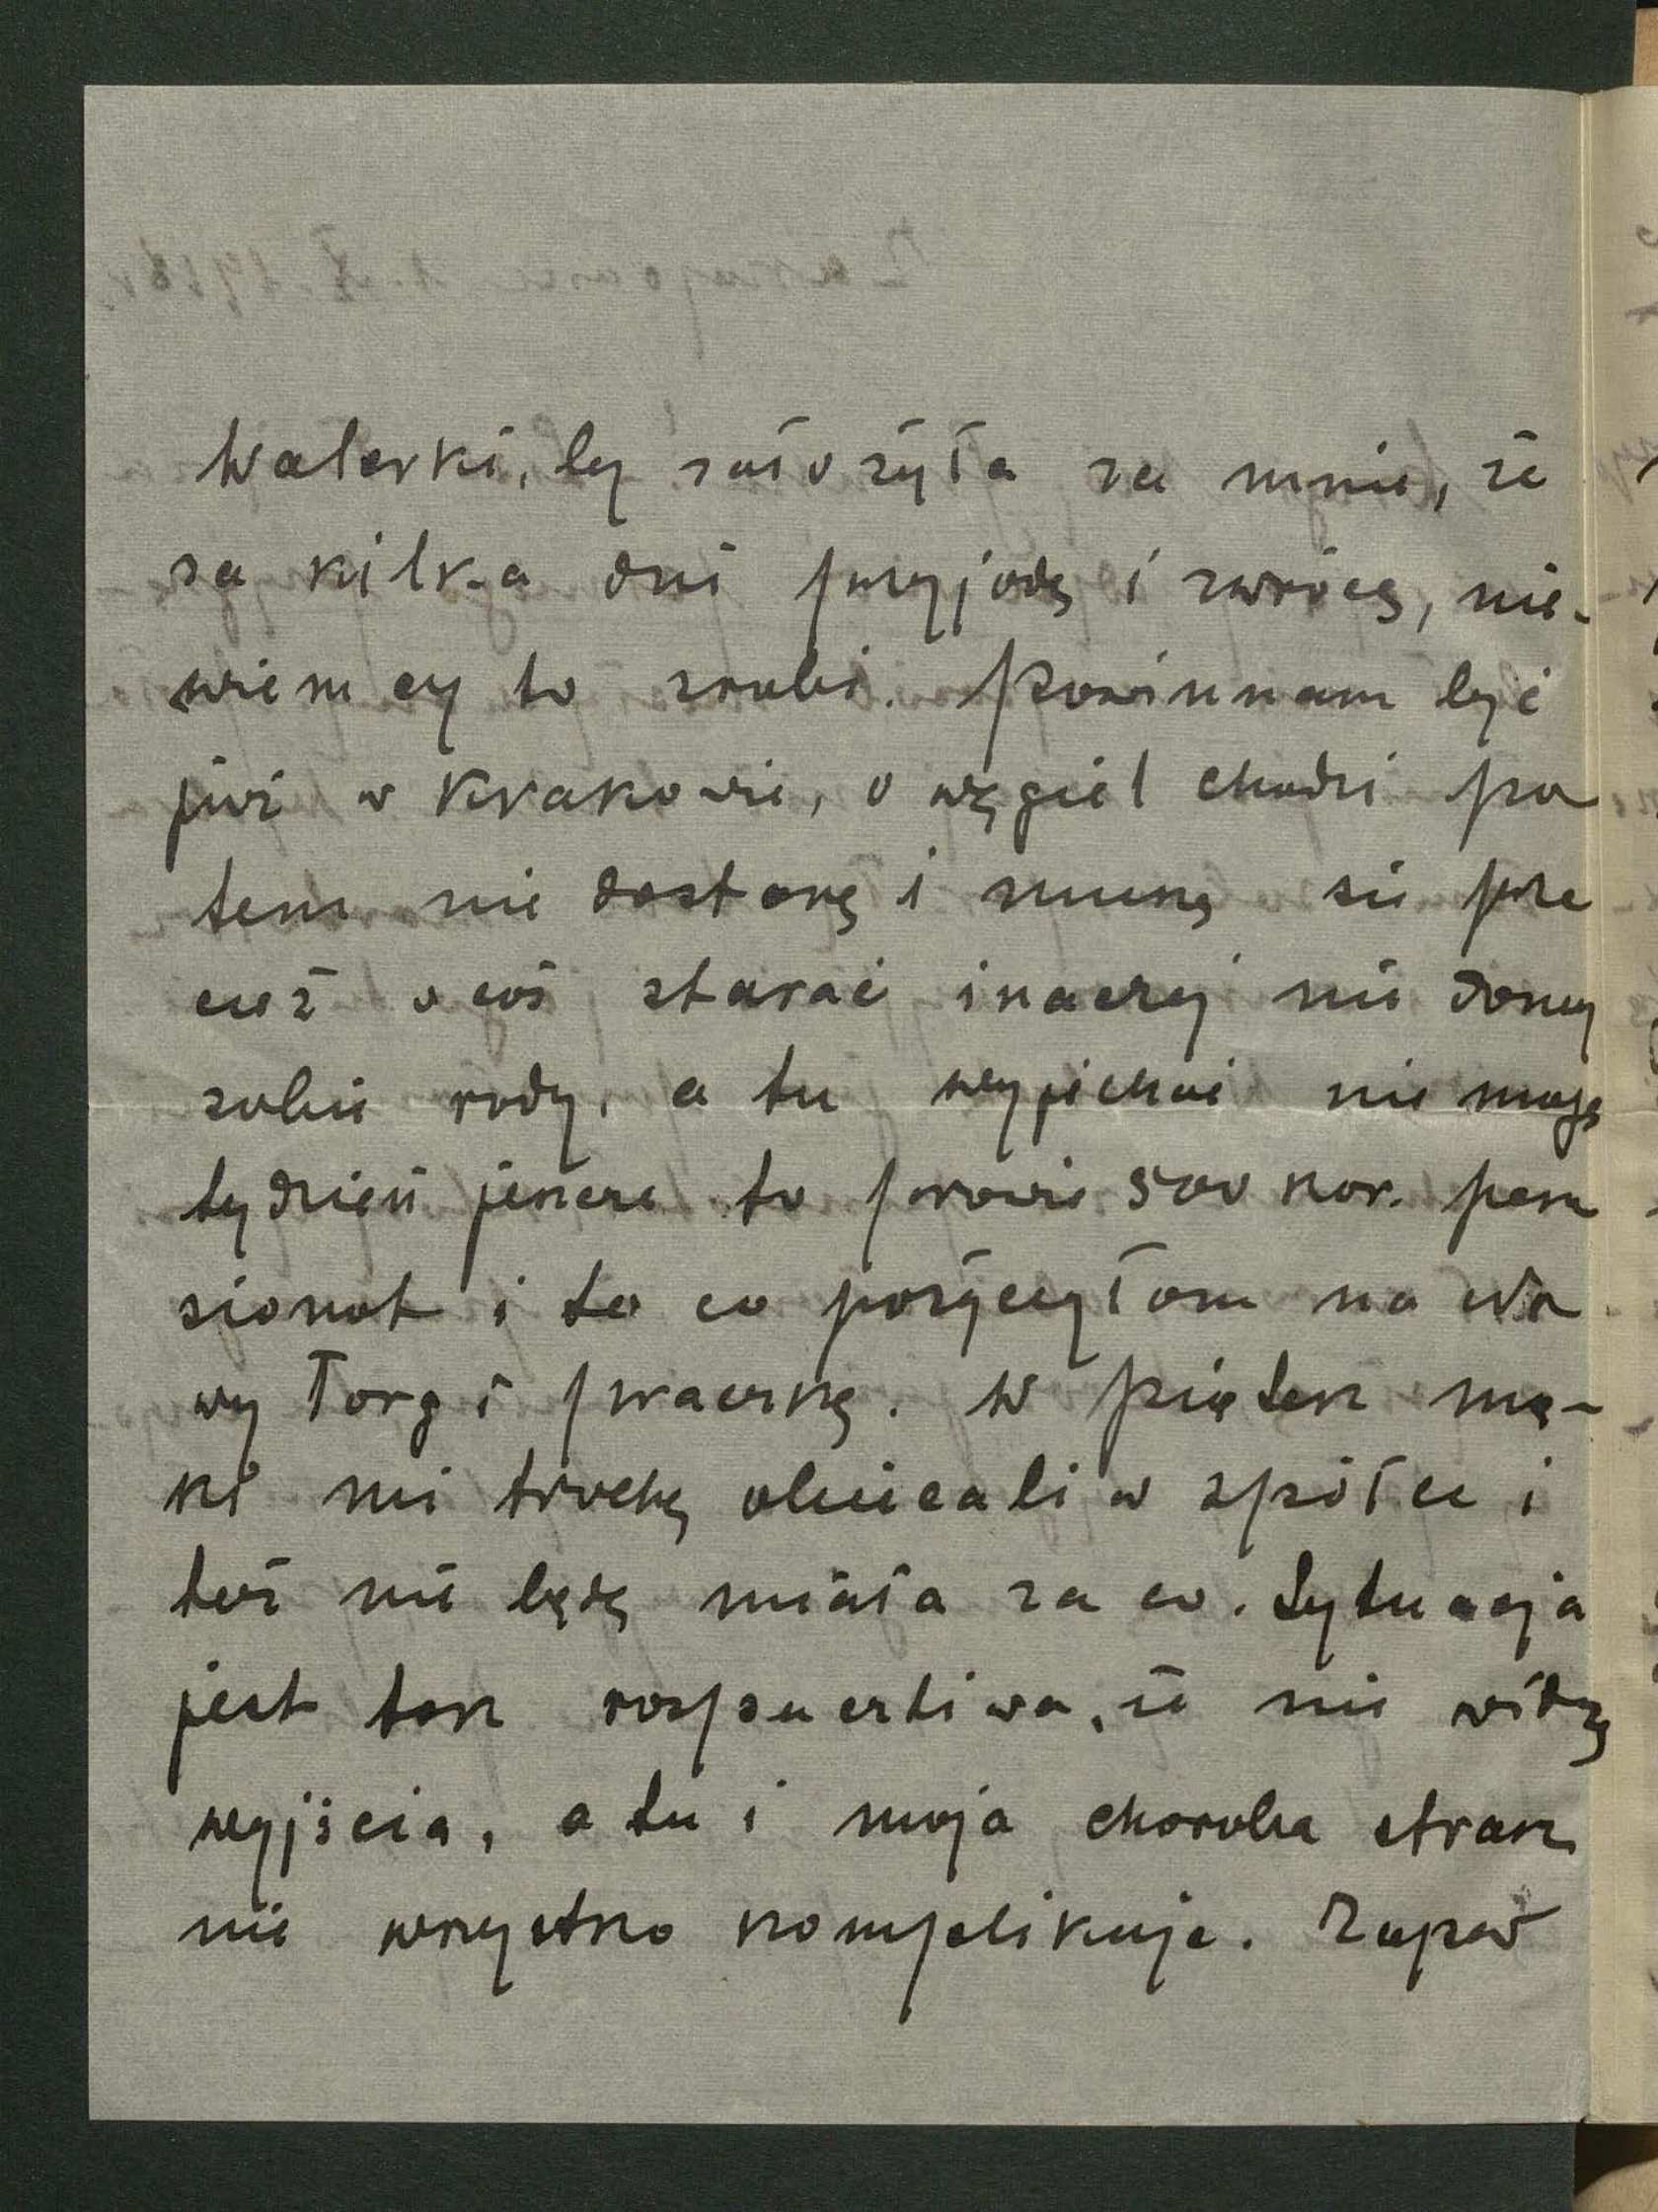 Walerki, by założyła za mnie, że
za kilka dni przyjadę i zwrócę, nie-
wiem czy to zrobi. Powinnam być
już w Krakowie, o węgiel chodzi po
tem nie dostanę i muszę się prze
cież o coś starać inaczej nie damy
sobie rady, a tu wyjechać nie mogę
tydzień jeszcze to prawie 500 kor. pen
sjonat i to co pożyczyłam na No
wy Targ i praczkę. W piątek mą-
ki mi trochę obiecali w spółce i
też nie będę miała za co. Sytuacja
jest tak rozpaczliwa, że nie widzę
wyjścia, a tu i moja choroba strasz
nie wszystko komplikuje. Zapew